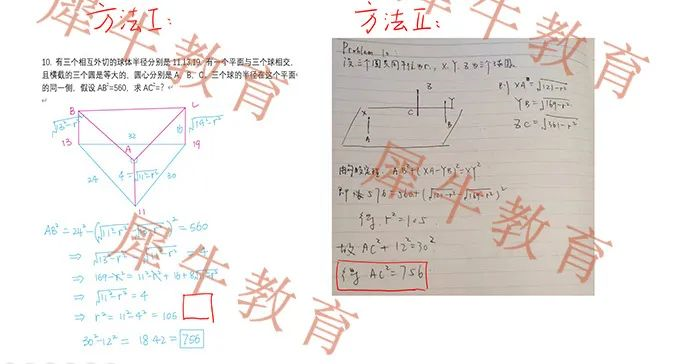 方法I:
10. 有三个相互外切的球体半径分别是 11,13,19. 有一个平面与三个球相交,
且横截的三个圆是等大的, 圆心分别是 A、B、C。三个球的半径在这个平面
的同一侧, 假设 AB²=560, 求 AC²=?
B
L
√13²-r²
√19²-r²
32
13
A
19
4=√11²-r²
24
30
11
AB² = 24² - (√11²-r² - √13²-r²)² = 560
⇒ √13²-r² - √11²-r² = 4
⇒ 169-r² = 11²-r² + 16 + 8√11²-r²
⇒ √11²-r² = 4
⇒ r² = 11²-4² = 105
30²-12² = 18·42 = 756
方法II:
Problem 10:
设三个圆共同半径为r, X, Y, Z为三个球圆
Z
X
Y
C
B
A
则 XA = √121-r²
YB = √169-r²
ZC = √361-r²
由勾股定理: AB²+(XA-YB)²=XY²
即 576=560+(√121-r² - √169-r²)²
得 r²=105
故 AC²+12²=30²
得 AC²=756
犀牛教育
犀牛教育
犀牛教育
犀牛教育
犀牛教育